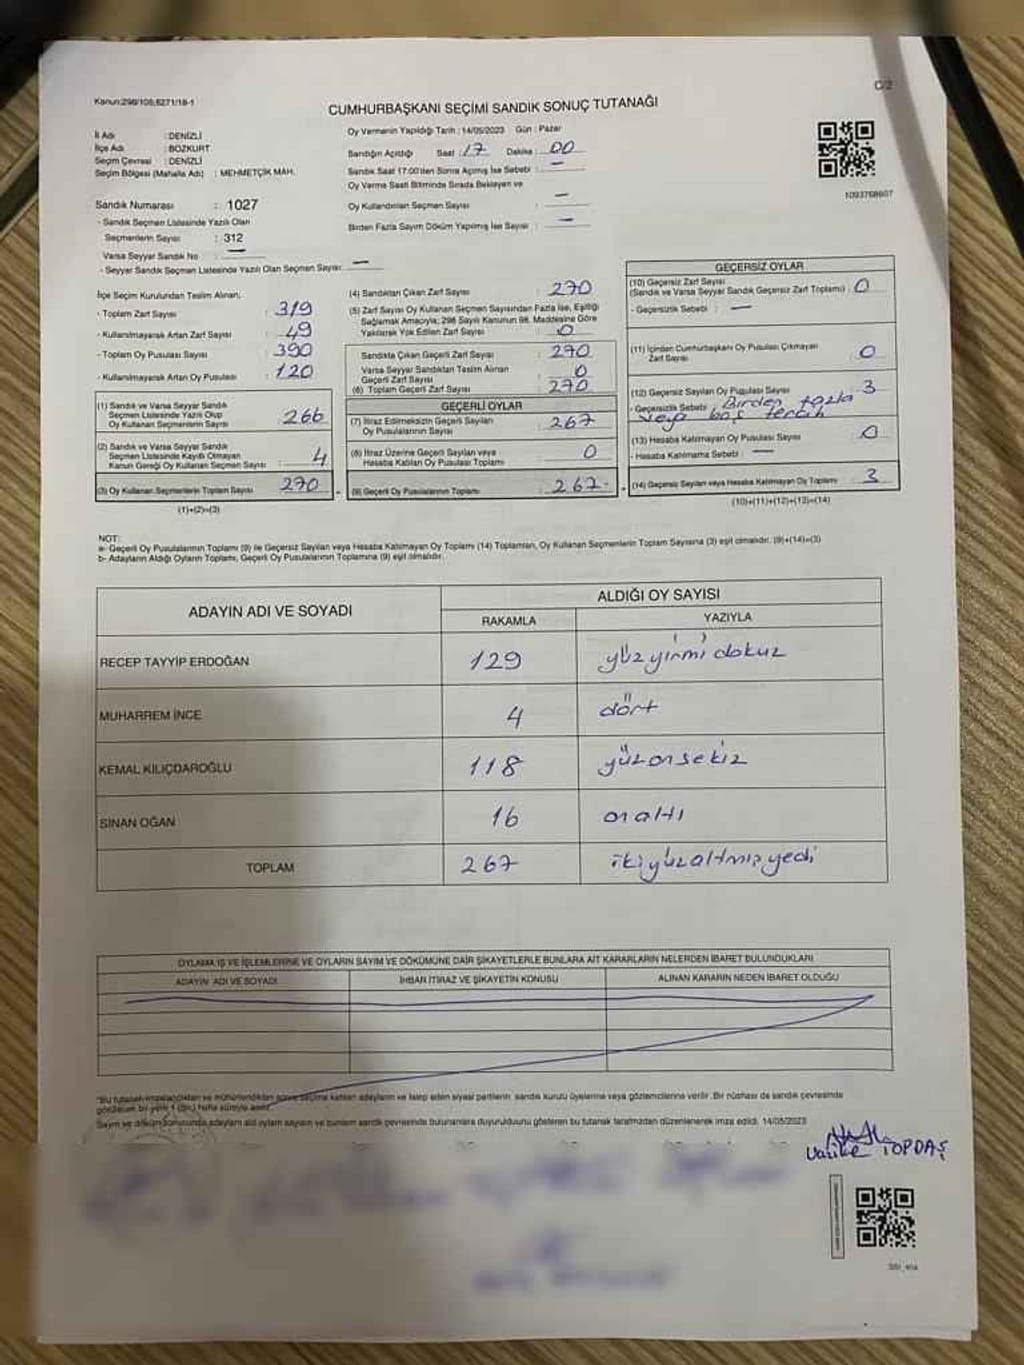 Kanun:298/105;6271/18-1
C/2
CUMHURBAŞKANI SEÇİMİ SANDIK SONUÇ TUTANAĞI
İl Adı : DENİZLİ
İlçe Adı : BOZKURT
Seçim Çevresi : DENİZLİ
Seçim Bölgesi (Mahalle Adı) : MEHMETÇİK MAH.
Oy Vermenin Yapıldığı Tarih : 14/05/2023 Gün : Pazar
Sandığın Açıldığı Saat : 17 Dakika : 00
Sandık Saat 17:00'den Sonra Açılmış İse Sebebi : —
Oy Verme Saati Bitiminde Sırada Bekleyen ve
Oy Kullandırılan Seçmen Sayısı —
Birden Fazla Sayım Döküm Yapılmış İse Sayısı : —
1093768607
Sandık Numarası : 1027
- Sandık Seçmen Listesinde Yazılı Olan
Seçmenlerin Sayısı : 312
Varsa Seyyar Sandık No : —
- Seyyar Sandık Seçmen Listesinde Yazılı Olan Seçmen Sayısı: —
İlçe Seçim Kurulundan Teslim Alınan;
- Toplam Zarf Sayısı : 319
- Kullanılmayarak Artan Zarf Sayısı : 49
- Toplam Oy Pusulası Sayısı : 390
- Kullanılmayarak Artan Oy Pusulası : 120
(1) Sandık ve Varsa Seyyar Sandık
Seçmen Listesinde Yazılı Olup
Oy Kullanan Seçmenlerin Sayısı : 266
(2) Sandık ve Varsa Seyyar Sandık
Seçmen Listesinde Kayıtlı Olmayan
Kanun Gereği Oy Kullanan Seçmen Sayısı : 4
(3) Oy Kullanan Seçmenlerin Toplam Sayısı : 270
(1)+(2)=(3)
(4) Sandıktan Çıkan Zarf Sayısı : 270
(5) Zarf Sayısı Oy Kullanan Seçmen Sayısından Fazla İse, Eşitliği
Sağlamak Amacıyla; 298 Sayılı Kanunun 98. Maddesine Göre
Yakılarak Yok Edilen Zarf Sayısı : 0
Sandıkta Çıkan Geçerli Zarf Sayısı : 270
Varsa Seyyar Sandıktan Teslim Alınan
Geçerli Zarf Sayısı : 0
(6) Toplam Geçerli Zarf Sayısı : 270
GEÇERLİ OYLAR
(7) İtiraz Edilmeksizin Geçerli Sayılan
Oy Pusulalarının Sayısı : 267
(8) İtiraz Üzerine Geçerli Sayılan veya
Hesaba Katılan Oy Pusulası Toplamı : 0
(9) Geçerli Oy Pusulalarının Toplamı : 267
GEÇERSİZ OYLAR
(10) Geçersiz Zarf Sayısı
(Sandık ve Varsa Seyyar Sandık Geçersiz Zarf Toplamı) : 0
- Geçersizlik Sebebi : —
(11) İçinden Cumhurbaşkanı Oy Pusulası Çıkmayan
Zarf Sayısı : 0
(12) Geçersiz Sayılan Oy Pusulası Sayısı : 3
- Geçersizlik Sebebi : Birden fazla
veya boş tercih
(13) Hesaba Katılmayan Oy Pusulası Sayısı : 0
- Hesaba Katılmama Sebebi : —
(14) Geçersiz Sayılan veya Hesaba Katılmayan Oy Toplamı : 3
(10)+(11)+(12)+(13)=(14)
NOT:
a- Geçerli Oy Pusulalarının Toplamı (9) ile Geçersiz Sayılan veya Hesaba Katılmayan Oy Toplamı (14) Toplamları, Oy Kullanan Seçmenlerin Toplam Sayısına (3) eşit olmalıdır. (9)+(14)=(3)
b- Adayların Aldığı Oyların Toplamı, Geçerli Oy Pusulalarının Toplamına (9) eşit olmalıdır.
ADAYIN ADI VE SOYADI
ALDIĞI OY SAYISI
RAKAMLA YAZIYLA
RECEP TAYYİP ERDOĞAN 129 yüz yirmi dokuz
MUHARREM İNCE 4 dört
KEMAL KILIÇDAROĞLU 118 yüzonsekiz
SİNAN OĞAN 16 onaltı
TOPLAM 267 ikiyüzaltmışyedi
OYLAMA İŞ VE İŞLEMLERİNE VE OYLARIN SAYIM VE DÖKÜMÜNE DAİR ŞİKAYETLERLE BUNLARA AİT KARARLARIN NELERDEN İBARET BULUNDUKLARI
ADAYIN ADI VE SOYADI İHBAR İTİRAZ VE ŞİKAYETİN KONUSU ALINAN KARARIN NEDEN İBARET OLDUĞU
"Bu tutanak imzalandıktan ve mühürlendikten sonra seçime katılan adayların ve talep eden siyasi partilerin, sandık kurulu üyelerine veya gözlemcilerine verilir. Bir nüshası da sandık çevresinde
görülecek bir yere 1 (bir) hafta süreyle asılır.
Sayım ve döküm sonucunda adayların aldı oyların sayısını ve bunların sandık çevresinde bulunanlara duyurulduunu gösteren bu tutanak tarafımızdan düzenlenerek imza edildi. 14/05/2023
TOPDAŞ